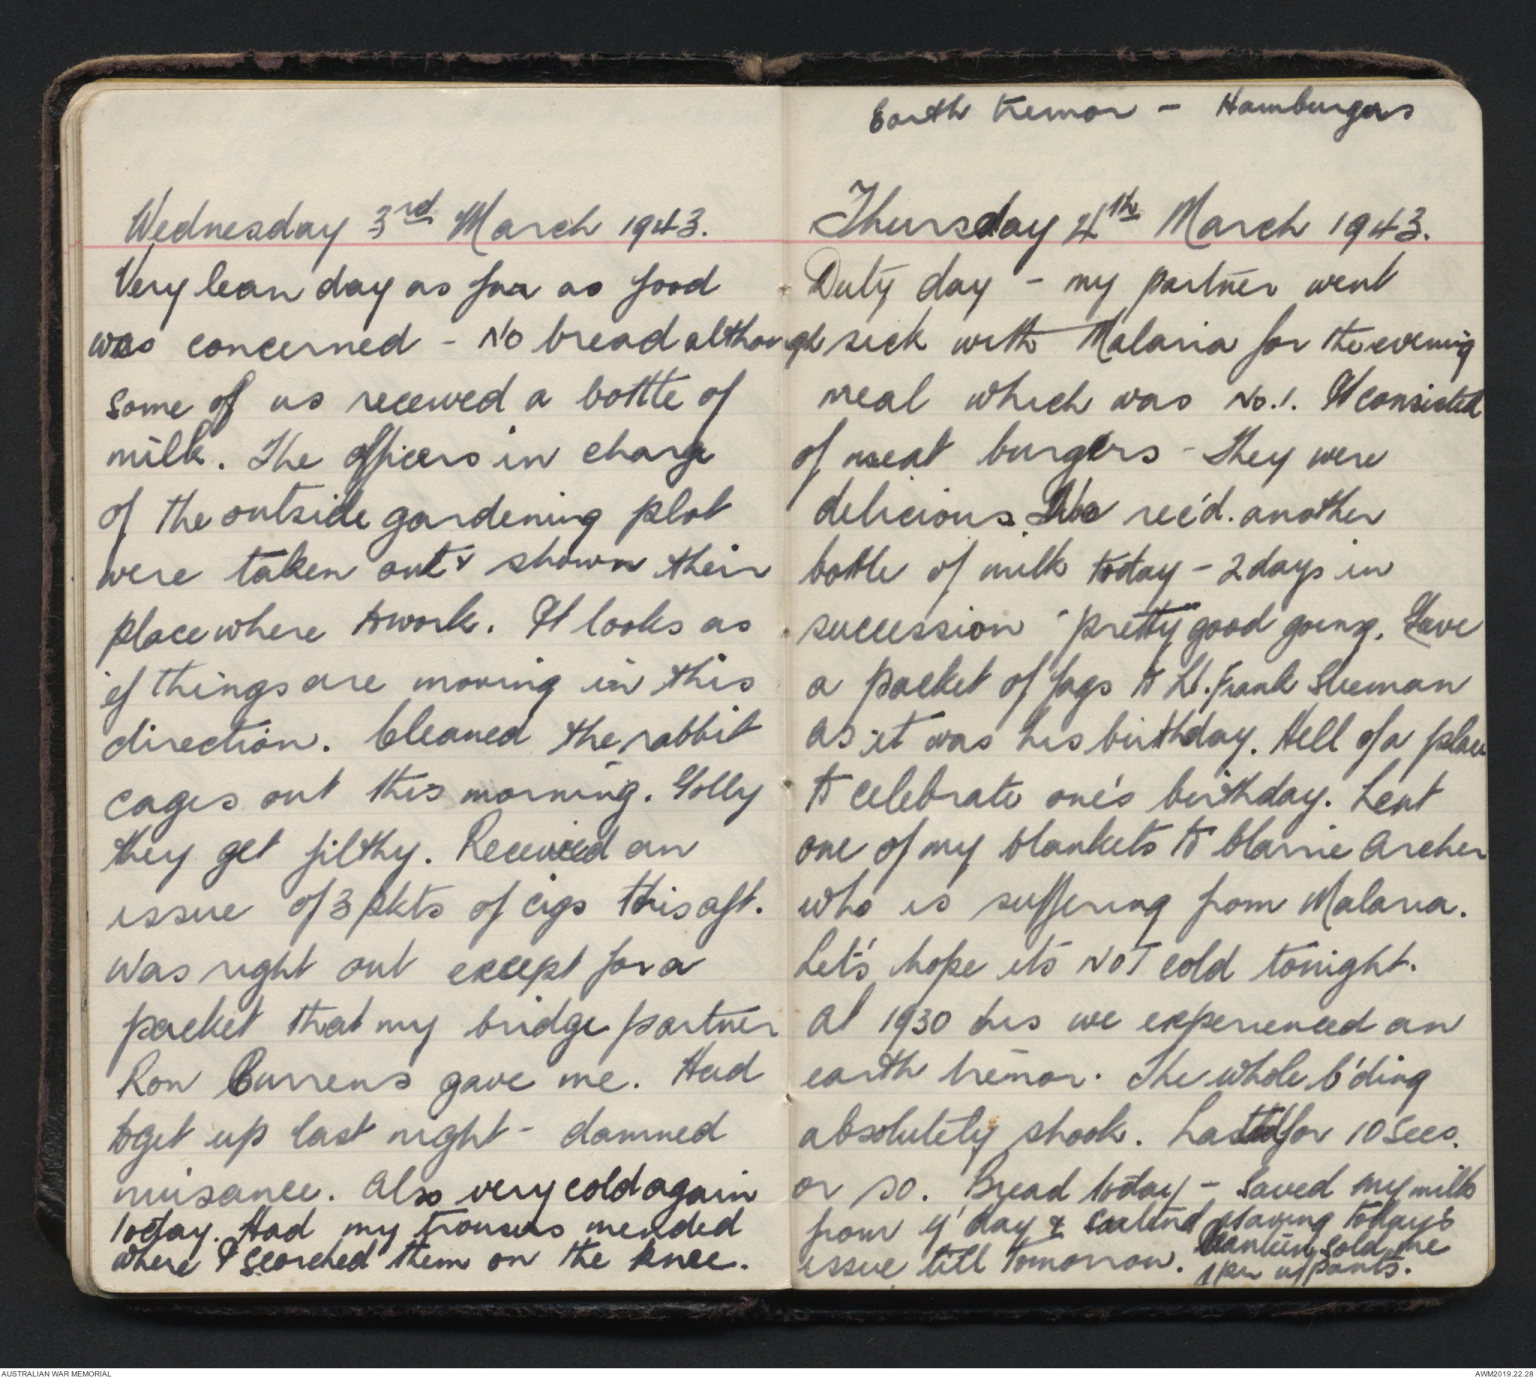 Wednesday 3rd March 1943.
Very lean day as far as food
was concerned - No bread although
some of us received a bottle of
milk. The officers in charge
of the outside gardening plot
were taken out & shown their
place where to work. It looks as
if things are moving in this
direction. Cleaned the rabbit
cages out this morning. Golly
they get filthy. Received an
issue of 3 pkts of cigs this aft.
Was right out except for a
packet that my bridge partner
Ron Currens gave me. Had
to get up last night - damned
nuisance. Also very cold again
today. Had my trousers mended
where I scorched them on the knee.
Earth tremor - Hamburgers
Thursday 4th March 1943.
Duty day - my partner went
sick with Malaria for the evening
meal which was No.1. It consisted
of meat burgers - They were
delicious. We rec'd. another
bottle of milk today - 2 days in
succession - pretty good going. Gave
a packet of fags to Lt. Frank Sleeman
as it was his birthday. Hell of a place
to celebrate one's birthday. Lent
one of my blankets to Clarrie Archer
who is suffering from Malaria.
Let's hope it's NOT cold tonight.
At 1930 hrs we experienced an
earth tremor. The whole b'ding
absolutely shook. Lasted for 10 secs.
or so. Bread today - saved my milk
from y'day & saving today's
issue till tomorrow. Canteen sold me
1 pr u/pants.
AUSTRALIAN WAR MEMORIAL
AWM2019.22.28